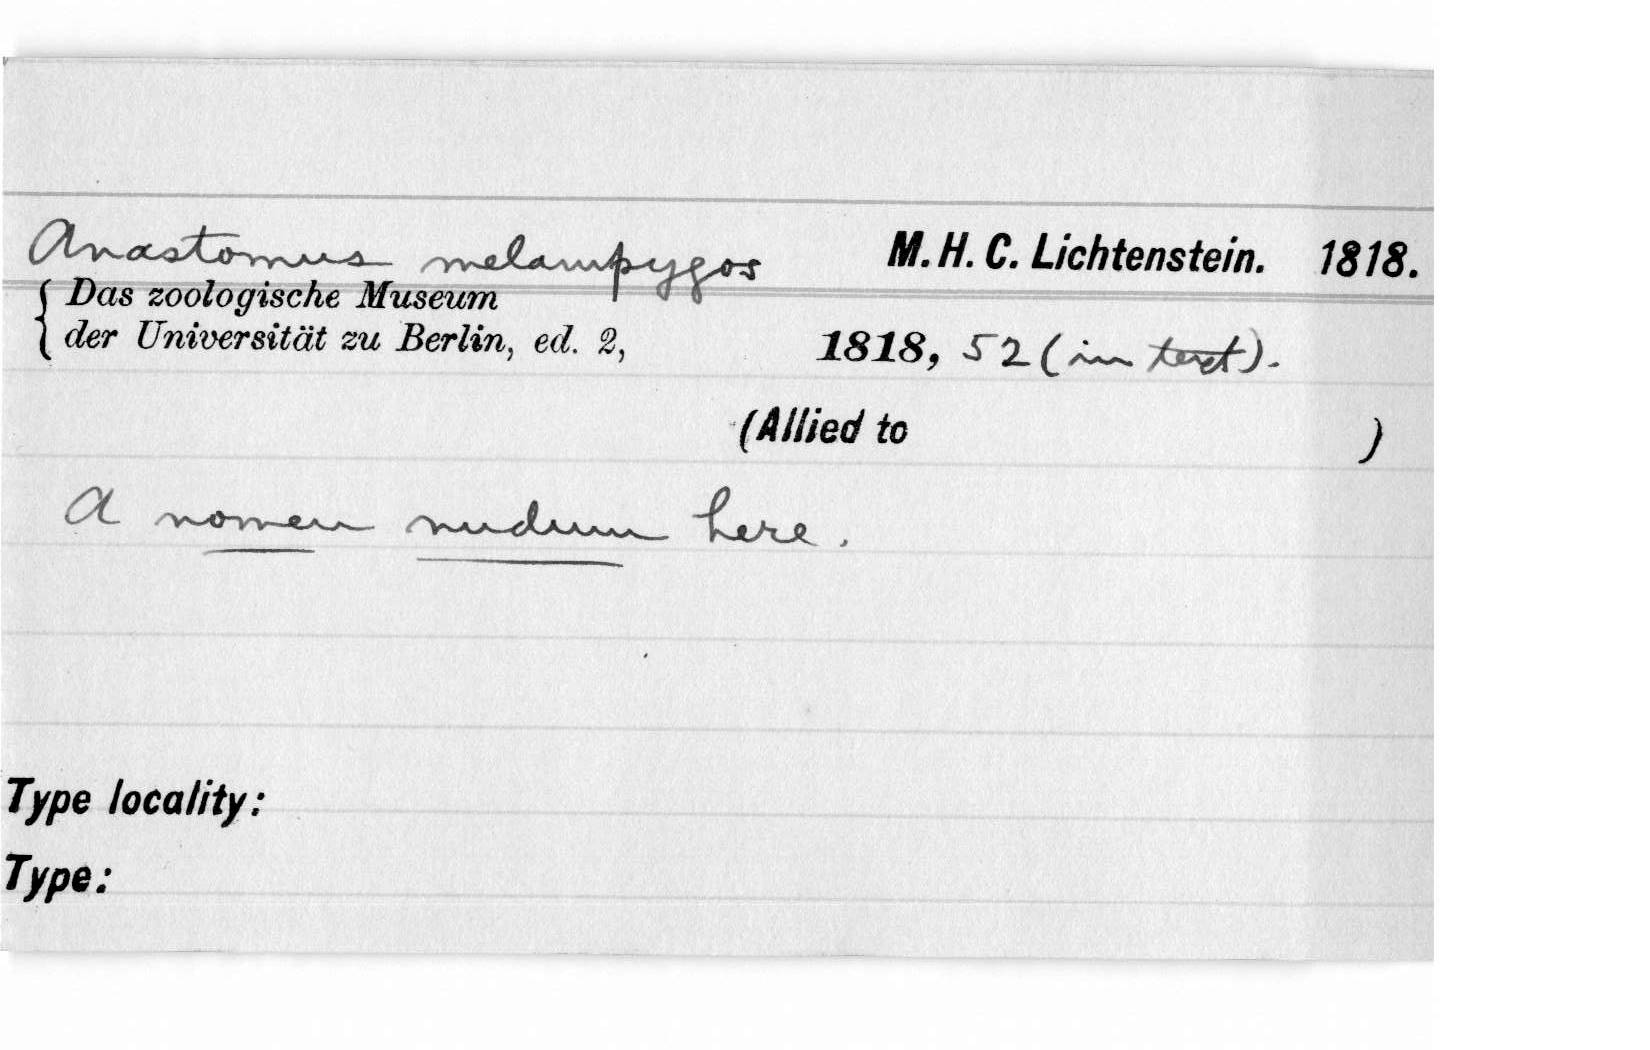 Anastomus melampygos M. H. C. Lichtenstein. 1818.
{ Das zoologische Museum
der Universität zu Berlin, ed. 2, 1818, 52 (in text).
(Allied to )
A nomen nudum here.
Type locality:
Type: